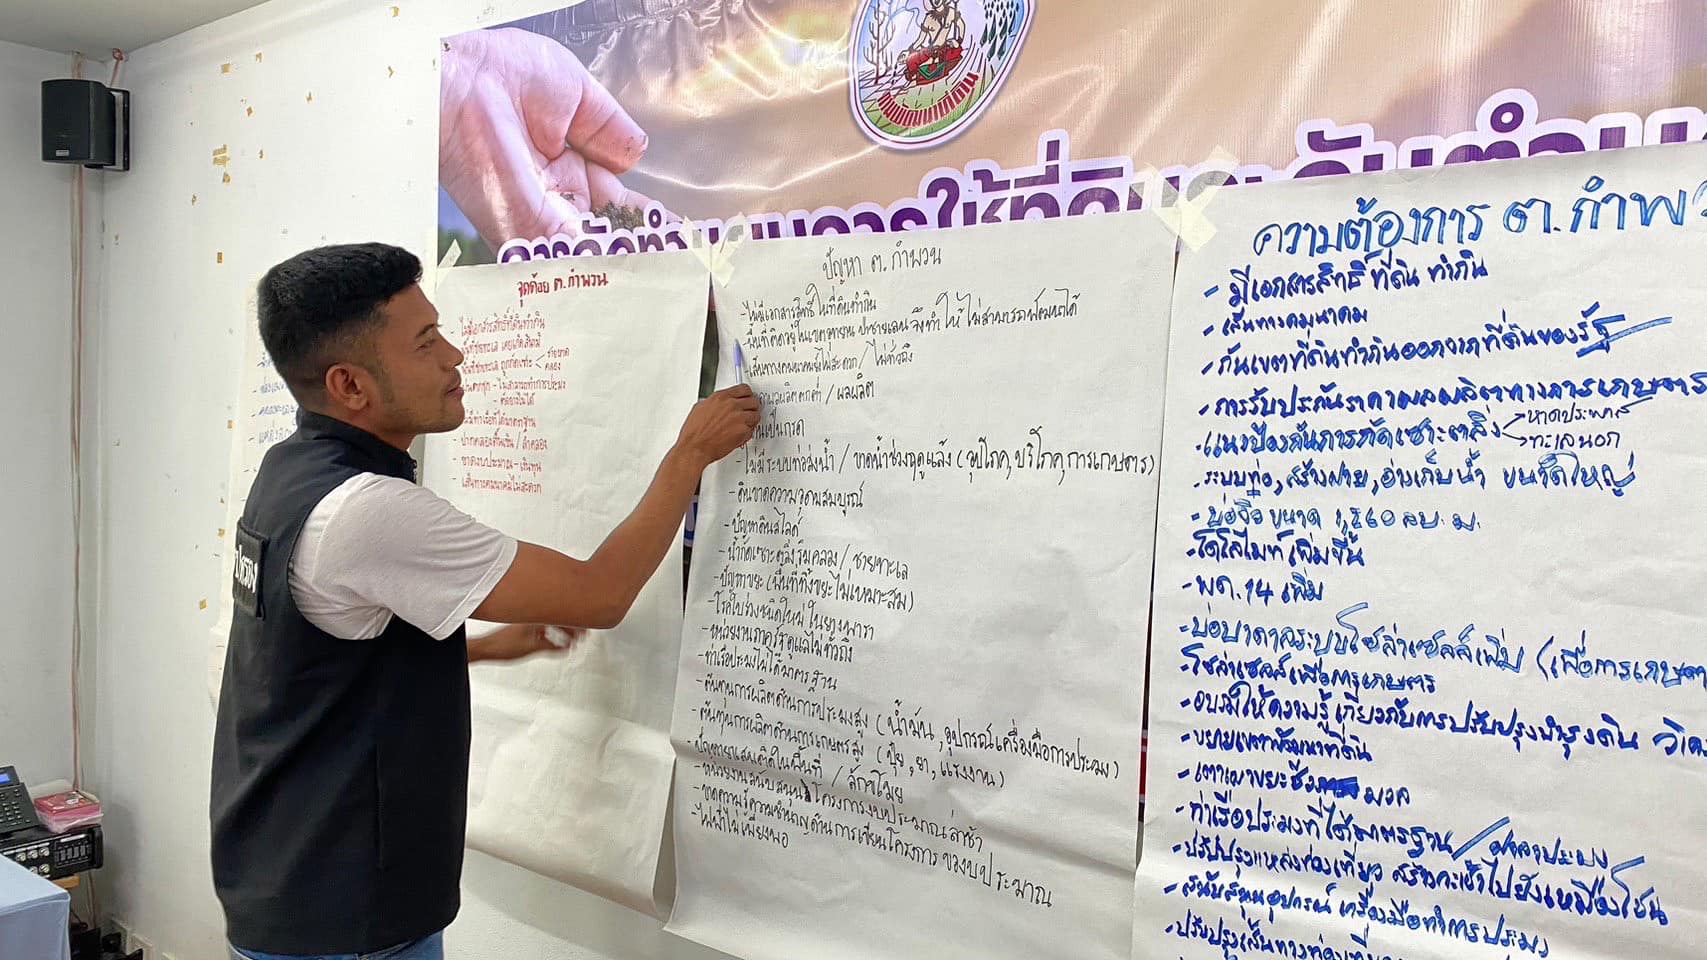 กรมพัฒนาที่ดิน
การจัดทำแผนการใช้ที่ดินระดับตำบล
ปกครอง
จุดด้อย ต.กำพวน
- ไม่มีเอกสารสิทธิ์ที่ดินทำกิน
พื้นที่ชายทะเล เคยเกิดสึนามิ
พื้นที่ชายทะเล ถูกกัดเซาะ
ชายหาด
คลอง
- ไม่สามารถทำการประมง
- ปากคลองตื้นเขิน / ลำคลอง
- ขาดงบประมาณ - เงินทุน
- เส้นทางคมนาคมไม่สะดวก
ปัญหา ต.กำพวน
- ไม่มีเอกสารสิทธิ์ในที่ดินทำกิน
- พื้นที่ติดอยู่ในเขตอุทยาน ป่าชายเลน จึงทำให้ไม่สามารถพัฒนาได้
- เส้นทางคมนาคมยังไม่สะดวก / ไม่ทั่วถึง
ผลผลิตตกต่ำ / ผลผลิต
เป็นกรด
- ไม่มีระบบท่อส่งน้ำ / ขาดน้ำช่วงฤดูแล้ง (อุปโภค, บริโภค, การเกษตร)
- ดินขาดความอุดมสมบูรณ์
- ปัญหาดินสไลด์
- น้ำกัดเซาะตลิ่ง ริมคลอง / ชายทะเล
- ปัญหาขยะ (พื้นที่ทิ้งขยะไม่เหมาะสม)
- โรคใบร่วงชนิดใหม่ในยางพารา
- หน่วยงานภาครัฐดูแลไม่ทั่วถึง
- ท่าเรือประมงไม่ได้มาตรฐาน
- ต้นทุนการผลิตด้านการประมงสูง (น้ำมัน, อุปกรณ์เครื่องมือการประมง)
- ต้นทุนการผลิตด้านการเกษตรสูง (ปุ๋ย, ยา, แรงงาน)
- ปัญหายาเสพติดในพื้นที่ / ลักขโมย
- หน่วยงานสนับสนุนโครงการงบประมาณล่าช้า
- ขาดความรู้ความชำนาญด้านการเขียนโครงการของบประมาณ
- ไฟฟ้าไม่เพียงพอ
ความต้องการ ต.กำพวน
- มีเอกสารสิทธิ์ที่ดินทำกิน
- เส้นทางคมนาคม
- กันเขตที่ดินทำกินออกจากที่ดินของรัฐ
- การรับประกันราคาผลผลิตทางการเกษตร
- แนวป้องกันการกัดเซาะตลิ่ง
หาดประพาส
ทะเลนอก
- ระบบท่อ, สร้างฝาย, อ่างเก็บน้ำ ขนาดใหญ่
- บ่อจิ๋ว ขนาด 1,260 ลบ.ม.
- โดโลไมท์เพิ่มขึ้น
- พด.14 เพิ่ม
- บ่อบาดาลระบบโซล่าเซลล์เพิ่ม (เพื่อการเกษตร
- โซล่าเซลล์เพื่อการเกษตร
- อบรมให้ความรู้เกี่ยวกับการปรับปรุงบำรุงดิน
- ขยายเขตพัฒนาที่ดิน
- เตาเผาขยะชีวมวล
- ท่าเรือประมงที่ได้มาตรฐาน / ศาลาประมง
- ปรับปรุงแหล่งท่องเที่ยว
- สนับสนุนอุปกรณ์ เครื่องมือทำการประมง
- ปรับปรุงเส้นทางท่องเที่ยว